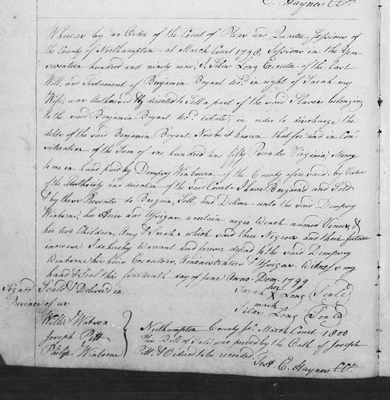 C. Haynes C.C.
Whereas by an Order of the Court of Pleas and Quarter Sessions of
the County of Northampton at March Court 1798, Sessions in the Year
Seventeen hundred and ninety nine, I Silas Long Executor of the Last
Will and Testament of Benjamin Bryant decd. in right of Sarah my
Wife, was Authorised & directed to Sell a part of the said Slaves belonging
to the said Benjamin Bryant decd. estate, in order to discharge the
debts of the said Benjamin Bryant. Now be it known that for and in Con
sideration of the Sum of one hundred and fifty Pounds Virginia Money
to me in hand paid by Dempsey Winborne of the County aforesaid. by Virtue
of the Authority and direction of the said Court I have Bargained and Sold
& by these Presents do Bargain, Sell, and Deliver unto the said Dempsey
Winborne, his Heirs and Assigns, a certain negro Wench named Venus, &
her two Children, Amy & Sarah, which said three Negroes and their future
increase I do hereby Warrant and forever defend to the said Dempsey
Winborne his heirs Executors, Administrators & Assigns. Witness my
hand & Seal this fourteenth day of June Anno Dom. 1799
Signed Sealed & Delivered in
Presence of us
Sarah her X mark Long (Seal)
Silas Long (Seal)
Willis Watson
Joseph Pitt
Philip Winborne
Northampton County Sc. March Court 1800
This Bill of Sale was proved by the Oath of Joseph
Pitt & Ordered to be recorded
Test C. Haynes CCk.